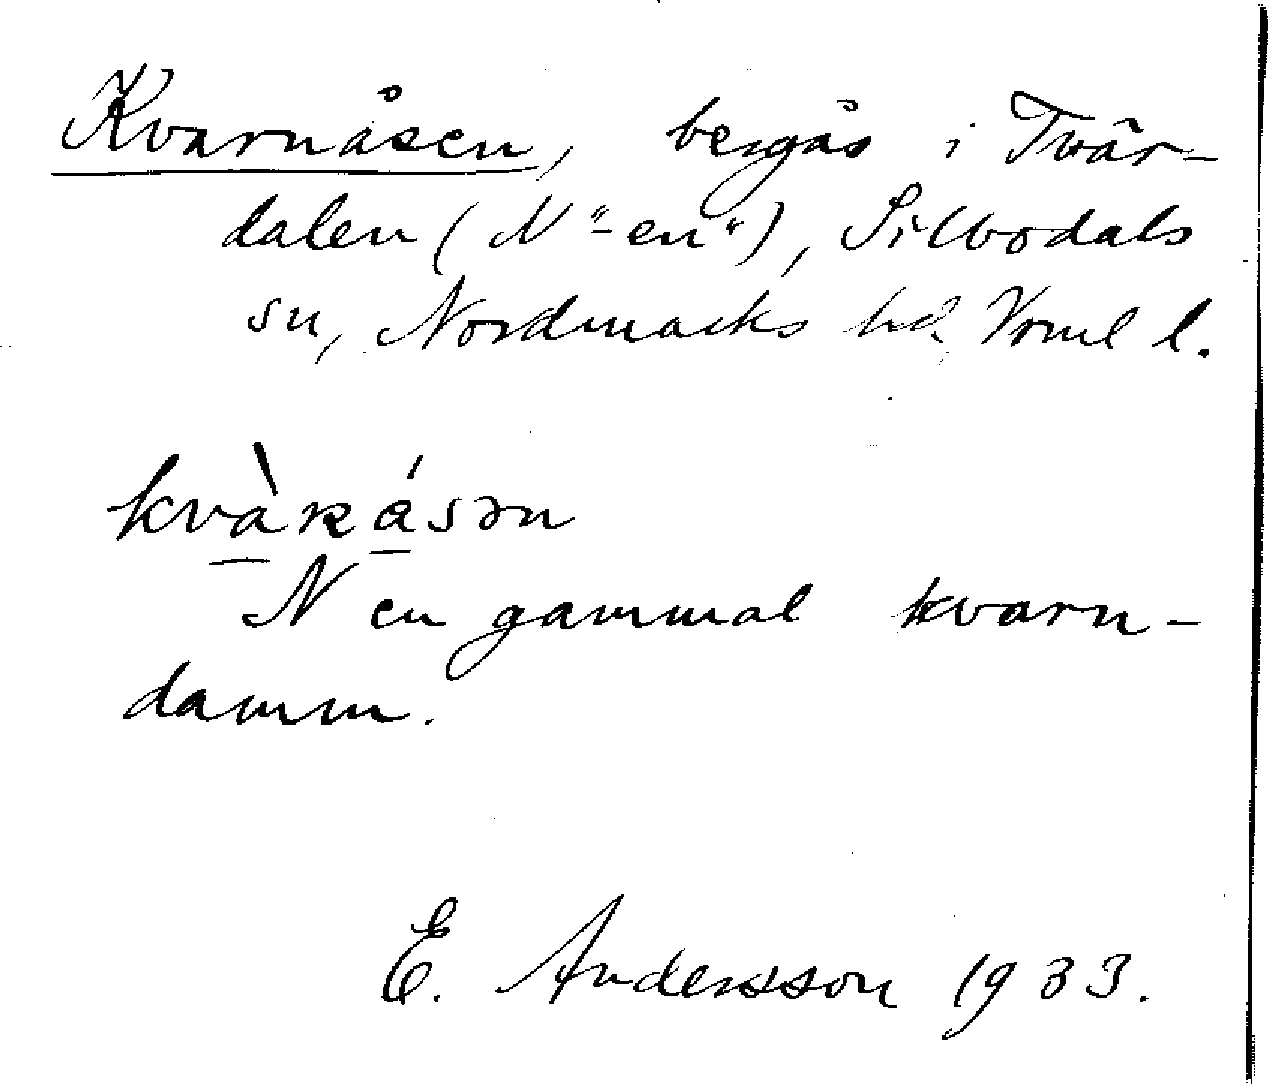 Kvarnåsen, bergås i Tvär-
dalen (N "-en"), Silbodals
sn, Nordmarks hd. Vrml l.
kvàʀásən
N en gammal kvarn-
damm.
E. Andersson 1933.